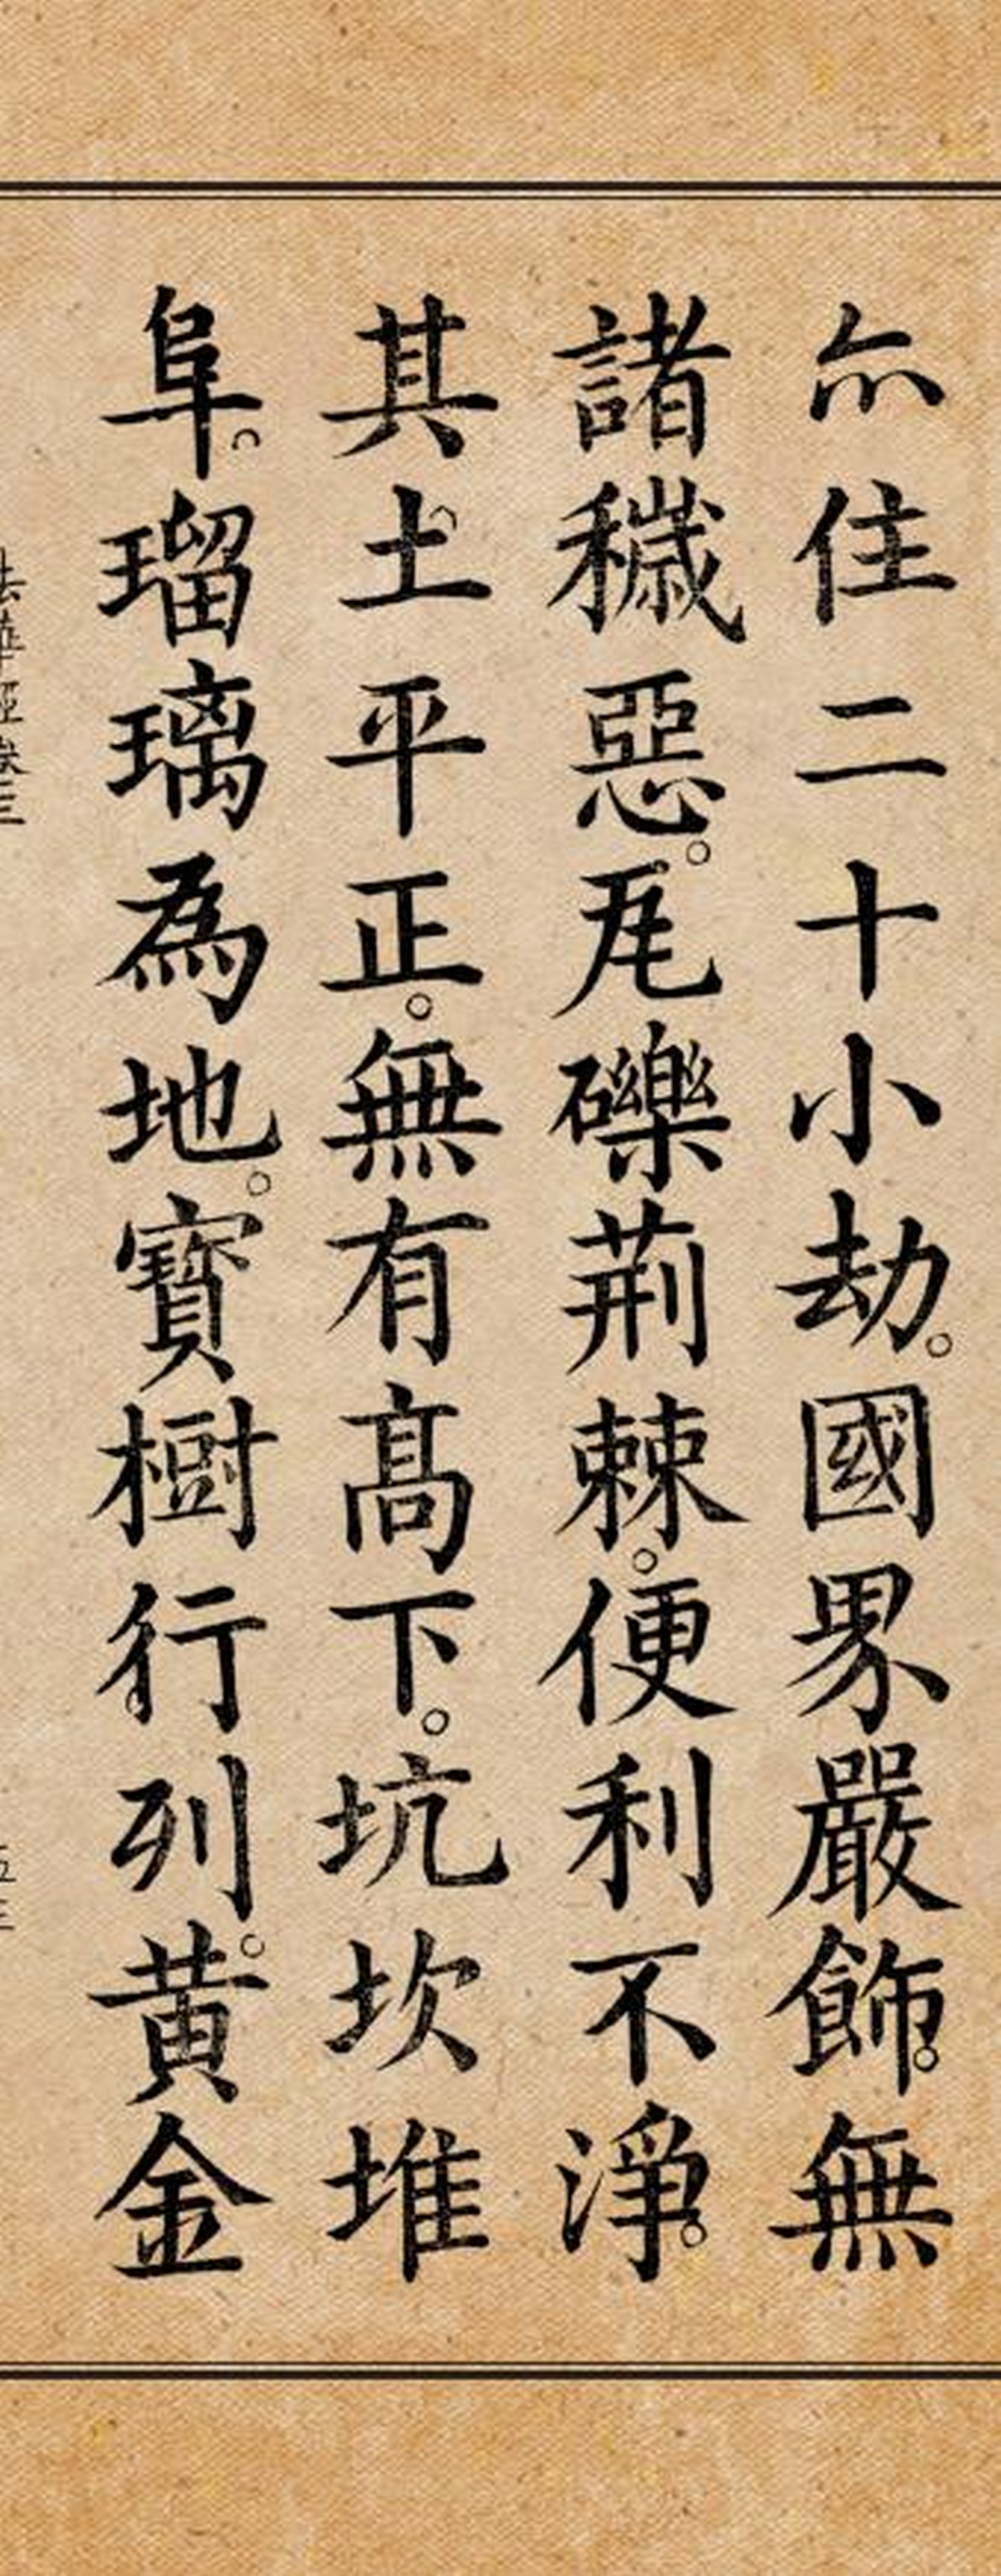 亦住二十小劫。國界嚴飾。無
諸穢惡。瓦礫荊棘。便利不淨。
其土平正。無有高下。坑坎堆
阜。瑠璃為地。寶樹行列。黃金
法華經卷三
五三